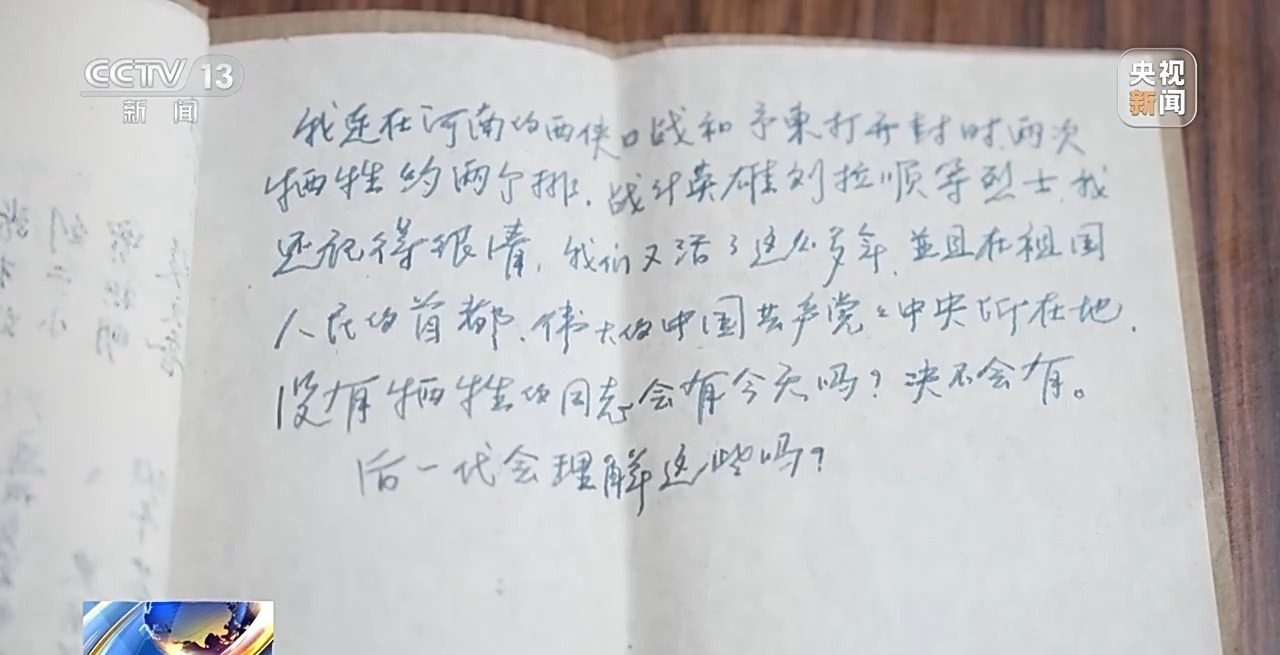 CCTV 13
新闻
央视
新闻
我连在河南的西侠口战和予东打开封时两次
牺牲约两个排，战斗英雄刘拉顺等烈士，我
还记得很清，我们又活了这么多年，並且在祖国
人民的首都，伟大的中国共产党之中央所在地，
没有牺牲的同志会有今天吗？决不会有。
后一代会理解这些吗？